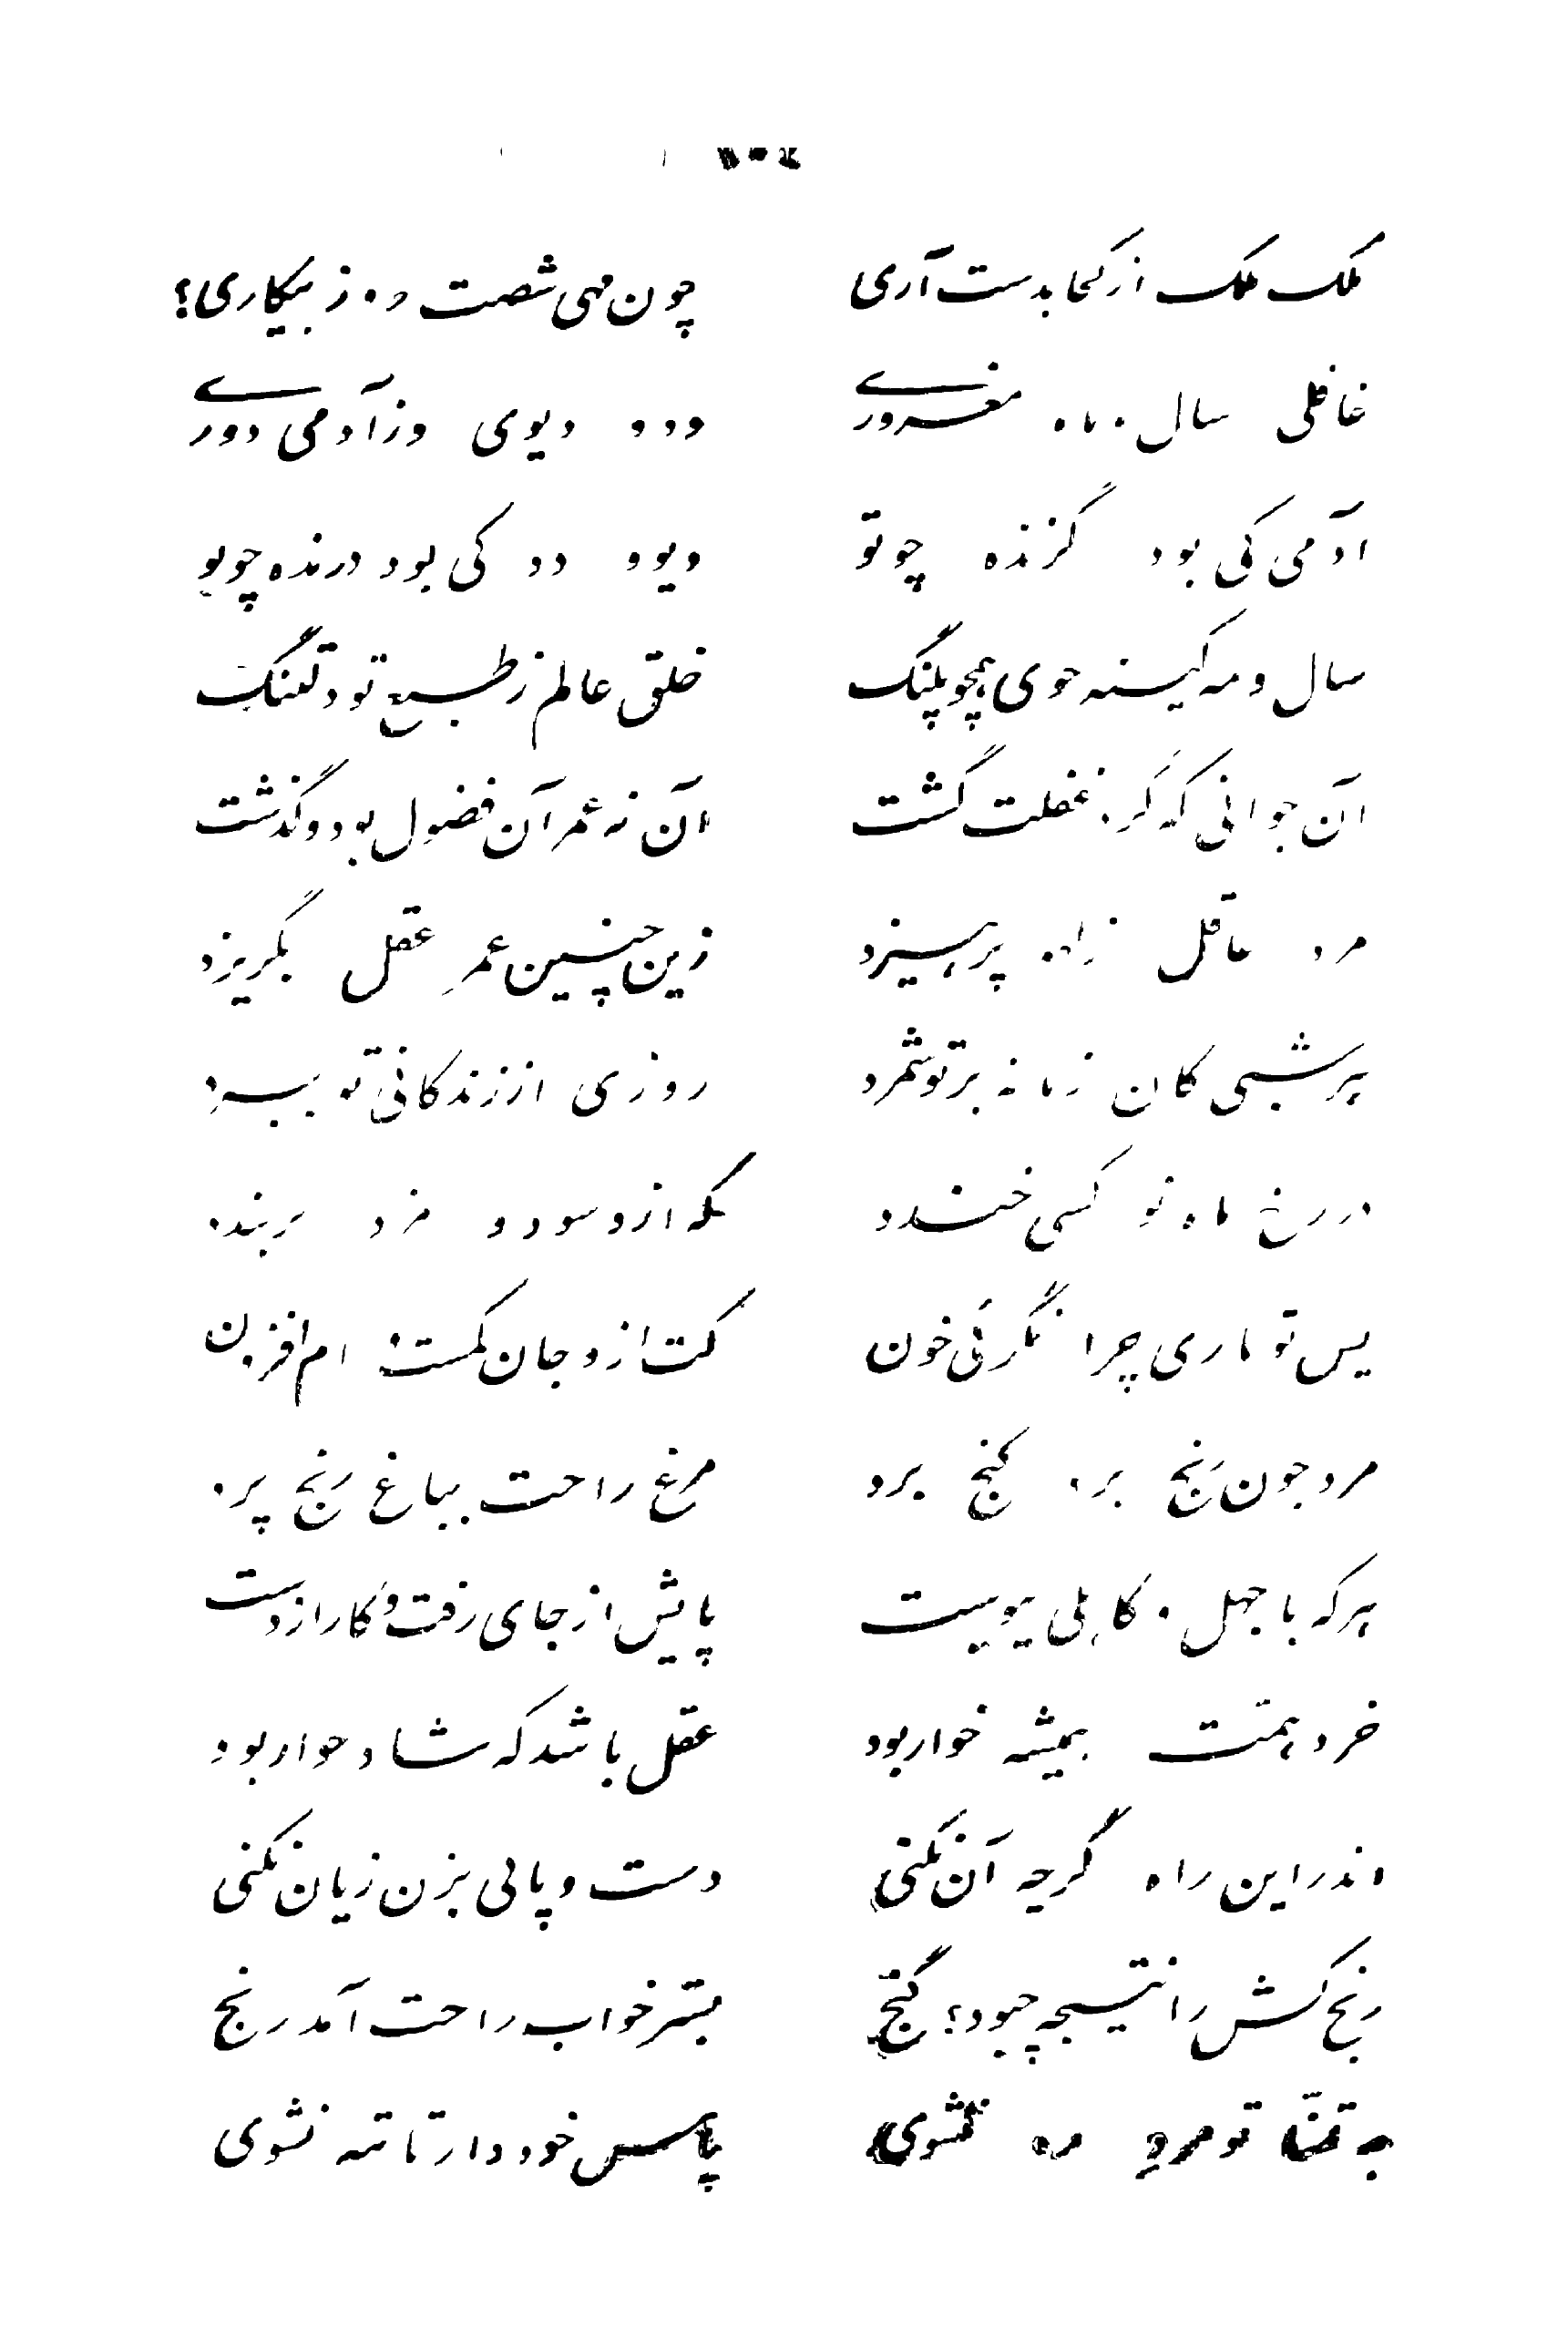 ملک ملک از کجا بدست آری    چون مهی شصت روز بیکاری؟
غافلی سال و ماه مغروری    دد و دیوی وز آدمی دوری
آدمی کی بود گزنده چو تو    دیو و دد کی بود درنده چو تو
سال و مه کینه جوی همچو پلنگ    خلق عالم ز طبع تو دلتنگ
آن جوانی که گرد غفلت گشت    آن نه عمر آن فضول بود و گذشت
مرد عاقل ز لهو پرهیزد    زین چنین عمر عقل بگریزد
هر شبی کان زمانه بر تو شمرد    روزی از زندگانی تو ببرد
در رخ ماه نو کسی خندد    که ازو سود و مزد بربندد
پس تو باری چرا نگریی خون    کت ازو جان کمست و ام افزون
مرد چون رنج برد گنج برد    مرغ راحت بباغ رنج پرد
هر که با جهل و کاهلی پیوست    پایش از جای رفت و کار از دست
خرد همت همیشه خوار بود    عقل باشد که شاد خوار بود
اندر این راه گرچه آن نکنی    دست و پائی بزن زیان نکنی
رنج کش را نتیجه چبود؟ گنج    بستر خواب راحت آمد رنج
به تمنا تو مرد ره نشوی    پاس خود دار تا تبه نشوی